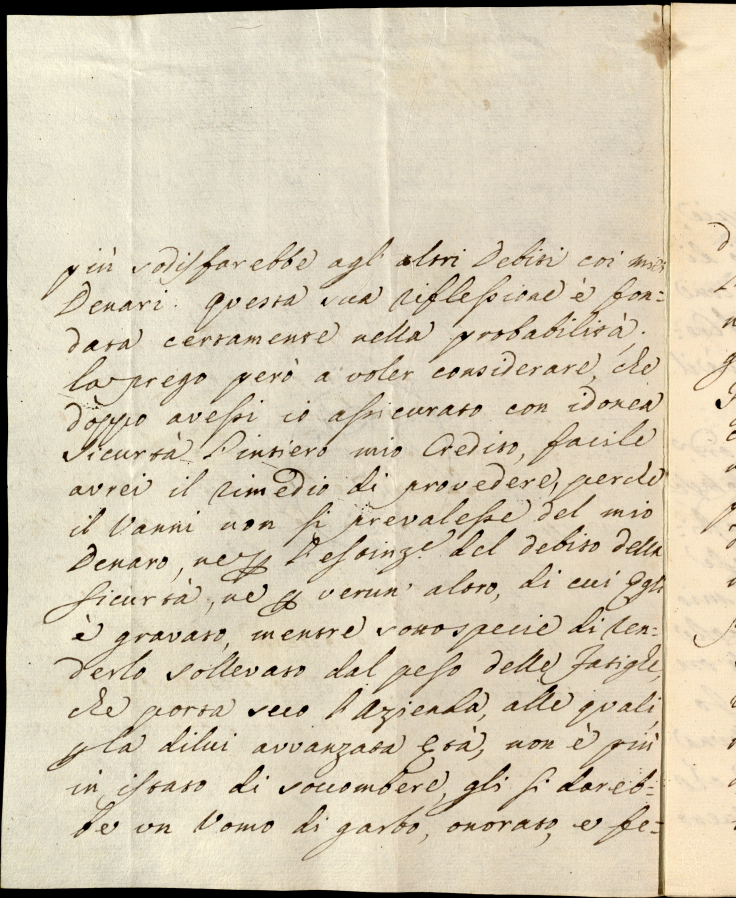 più sodisfarebbe agl'altri Debiti coi miei
Denari. Questa sua riflessione è fon=
data certamente nella probabilità.
la prego però a voler considerare, che
doppo avessi io assicurato con idonea
sicurtà l'intiero mio Credito, facile
avrei il rimedio di provedere, perche
il Vanni non si prevalesse del mio
Denaro, ne p l'estinz.e del debito della
sicurtà, ne p verun' altro, di cui Egli
è gravato, mentre sotto specie di ren=
derlo sollevato dal peso delle fatighe,
che porta seco l'Azienda, alle quali
p la dilui avvanzata Età, non è più
in istato di soccombere, gli si dareb=
be un Uomo di garbo, onorato, e fe=